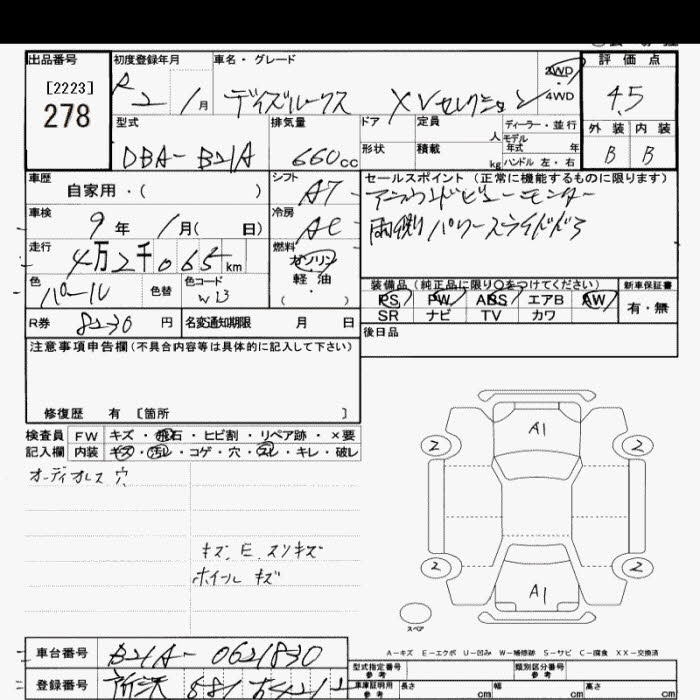 出品番号 初度登録年月 車名・グレード 評価点
[2223]
278
R2 1月 デイズルークス XVセレクション 2WD 4WD 4.5
型式 排気量 ドア 定員 人 ディーラー・並行 外装 内装
モデル年式 年
DBA-B21A 660cc 形状 積載 kg ハンドル 左・右 B B
車歴 シフト セールスポイント (正常に機能するものに限ります)
自家用・( ) AT アラウンドビューモニター
車検 冷房
9年 1月( 日) AC 両側パワースライドドア
走行 燃料
4万2千065km ガソリン
色 色替 色コード 軽油 装備品 (純正品に限り○をつけてください) 新車保証書
パール W13 ( ・ ) PS PW ABS エアB AW 有・無
SR ナビ TV カワ
R券 8230円 名変通知期限 月 日 後日品
注意事項申告欄(不具合内容等は具体的に記入して下さい)
修復歴 有 [箇所 ]
検査員 FW キズ・飛石・ヒビ割・リペア跡・×要
記入欄 内装 キズ・汚レ・コゲ・穴・スレ・キレ・破レ
オーディオレス 穴
A1
2 2
キズ、E、スリキズ
ホイールキズ
2 2
A1
スペア
A-キズ E-エクボ U-凹み W-補修跡 S-サビ C-腐食 XX-交換済
車台番号 B21A-0621830 型式指定番号 参考 類別区分番号 参考
登録番号 所沢 581 車庫証明用 参考 長さ cm 幅 cm 高さ cm